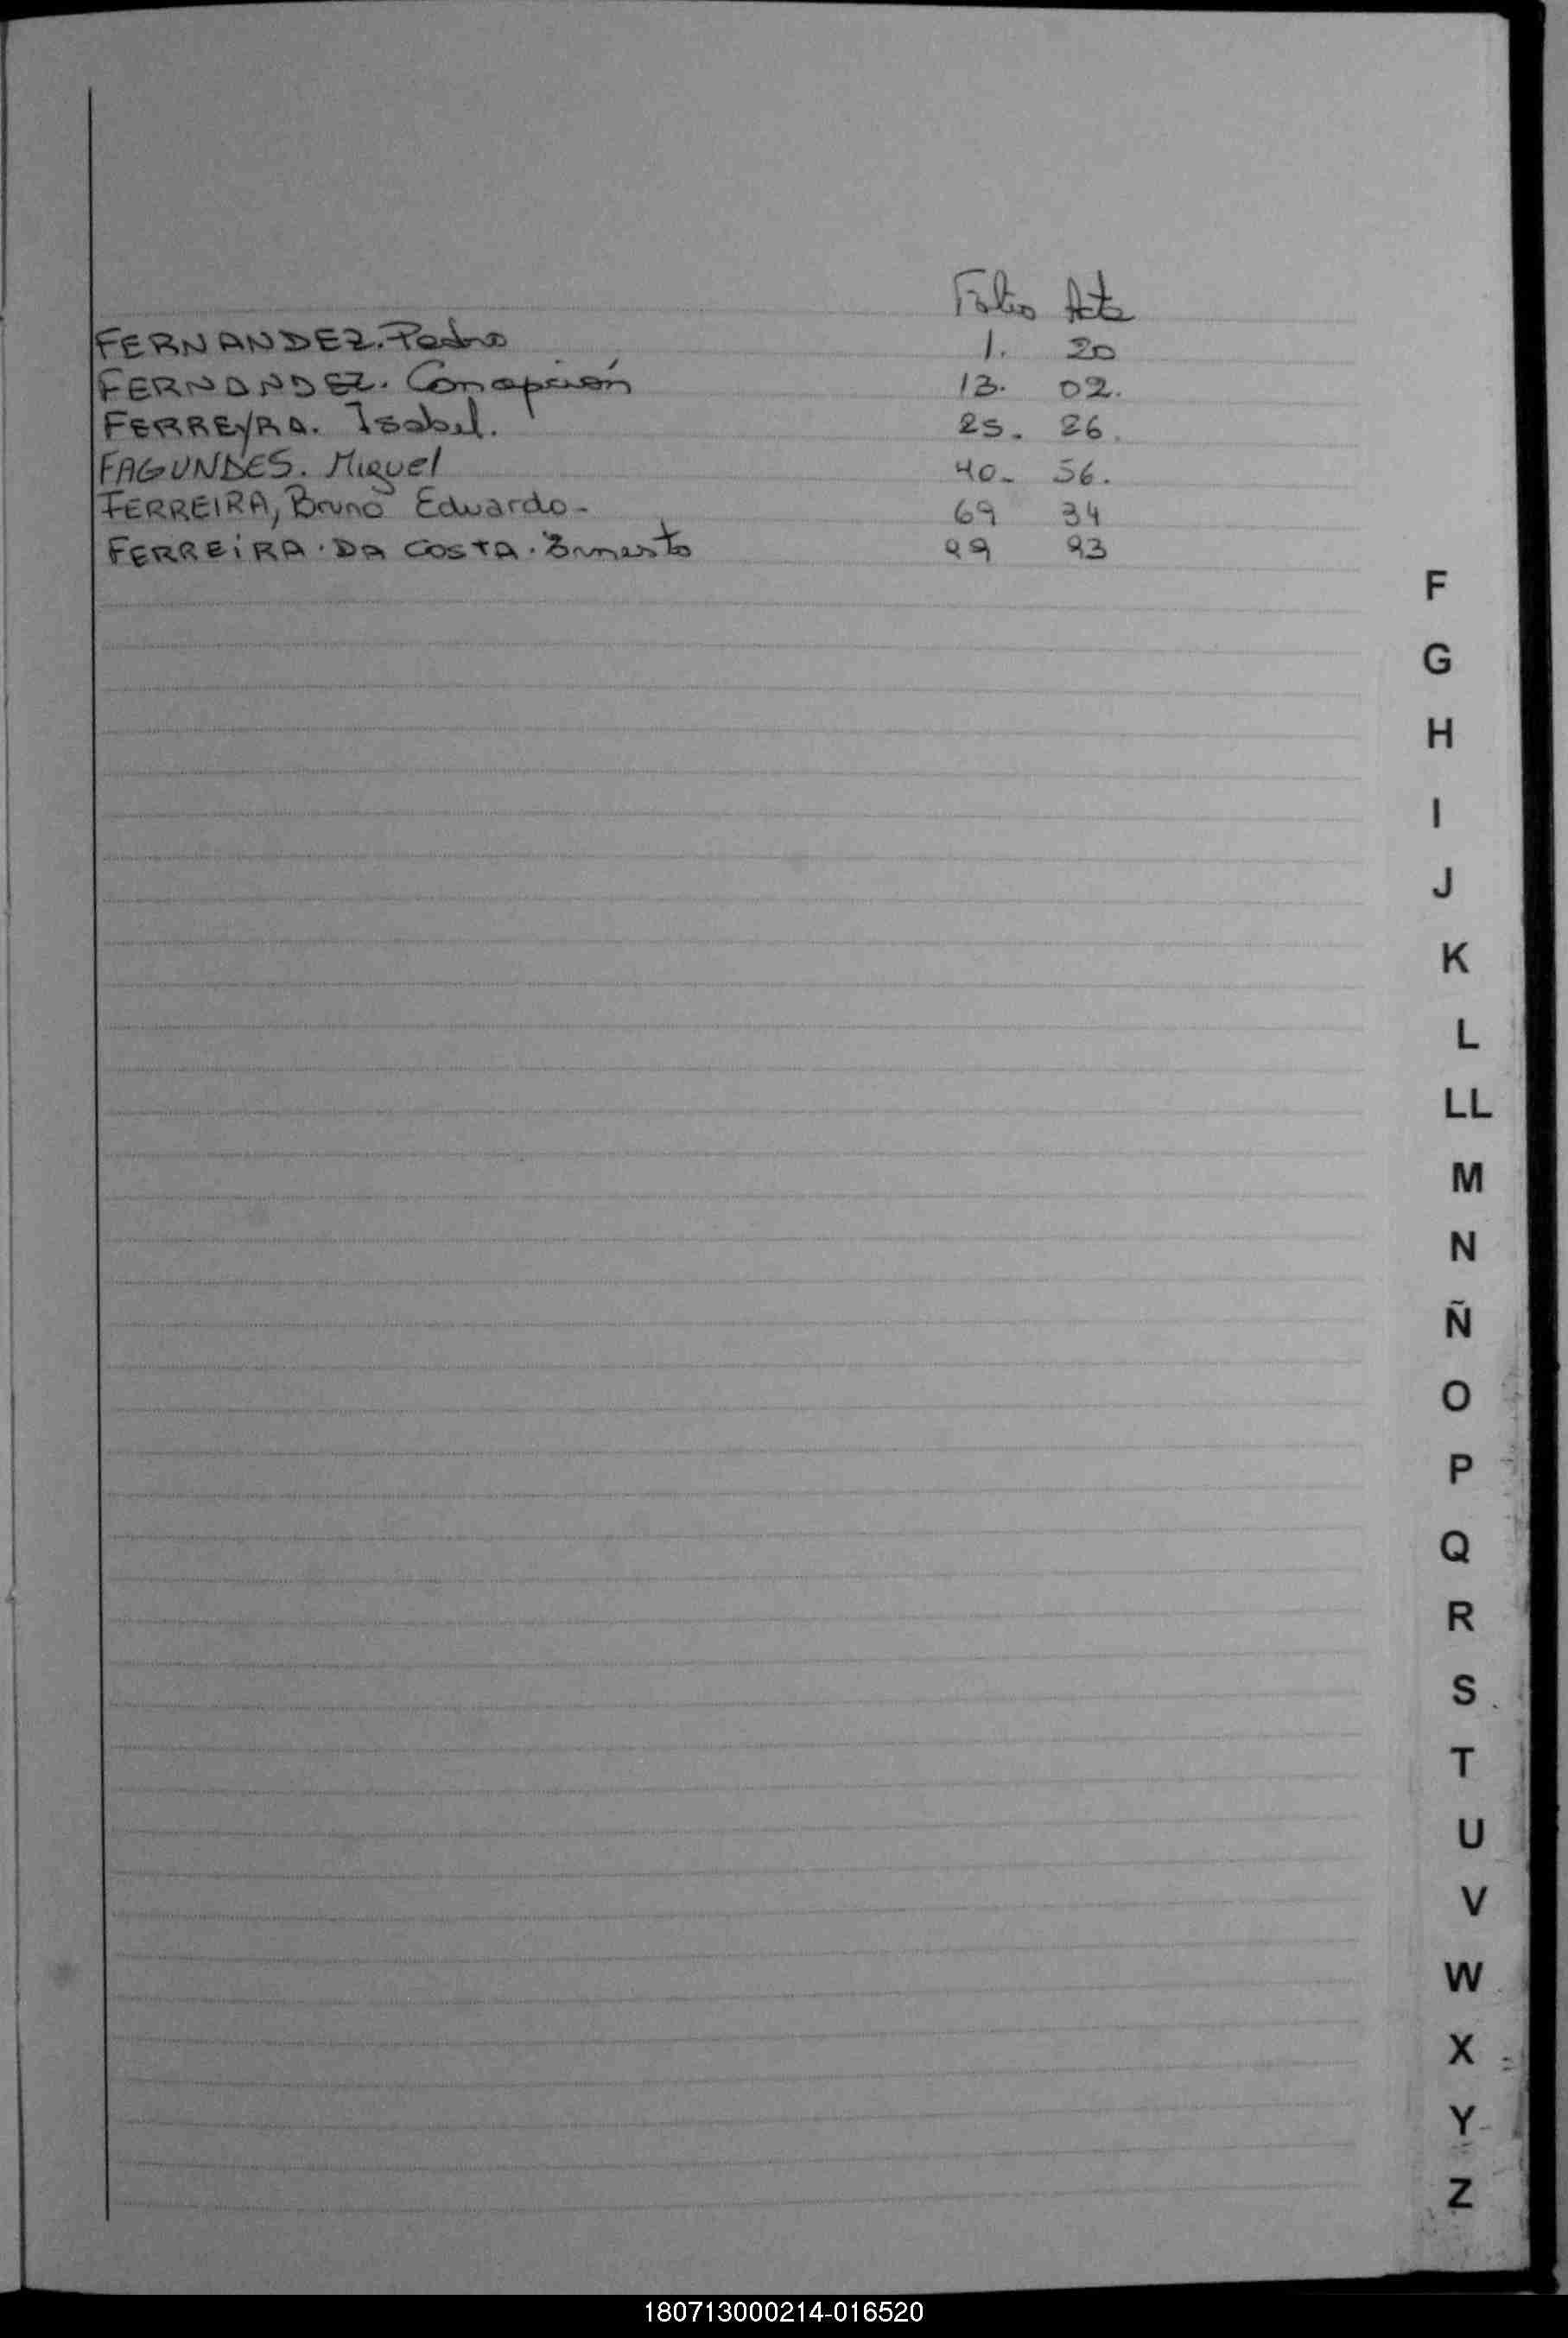 Folio Acta
FERNANDEZ. Pedro 1. 20
FERNANDEZ. Concepción 13. 02.
FERREYRA. Isabel. 25. 26.
FAGUNDES. Miguel 40- 56.
FERREIRA, Bruno Eduardo- 69 34
FERREIRA. DA COSTA. Ernesto 99 93
F
G
H
I
J
K
L
LL
M
N
Ñ
O
P
Q
R
S
T
U
V
W
X
Y
Z
180713000214-016520